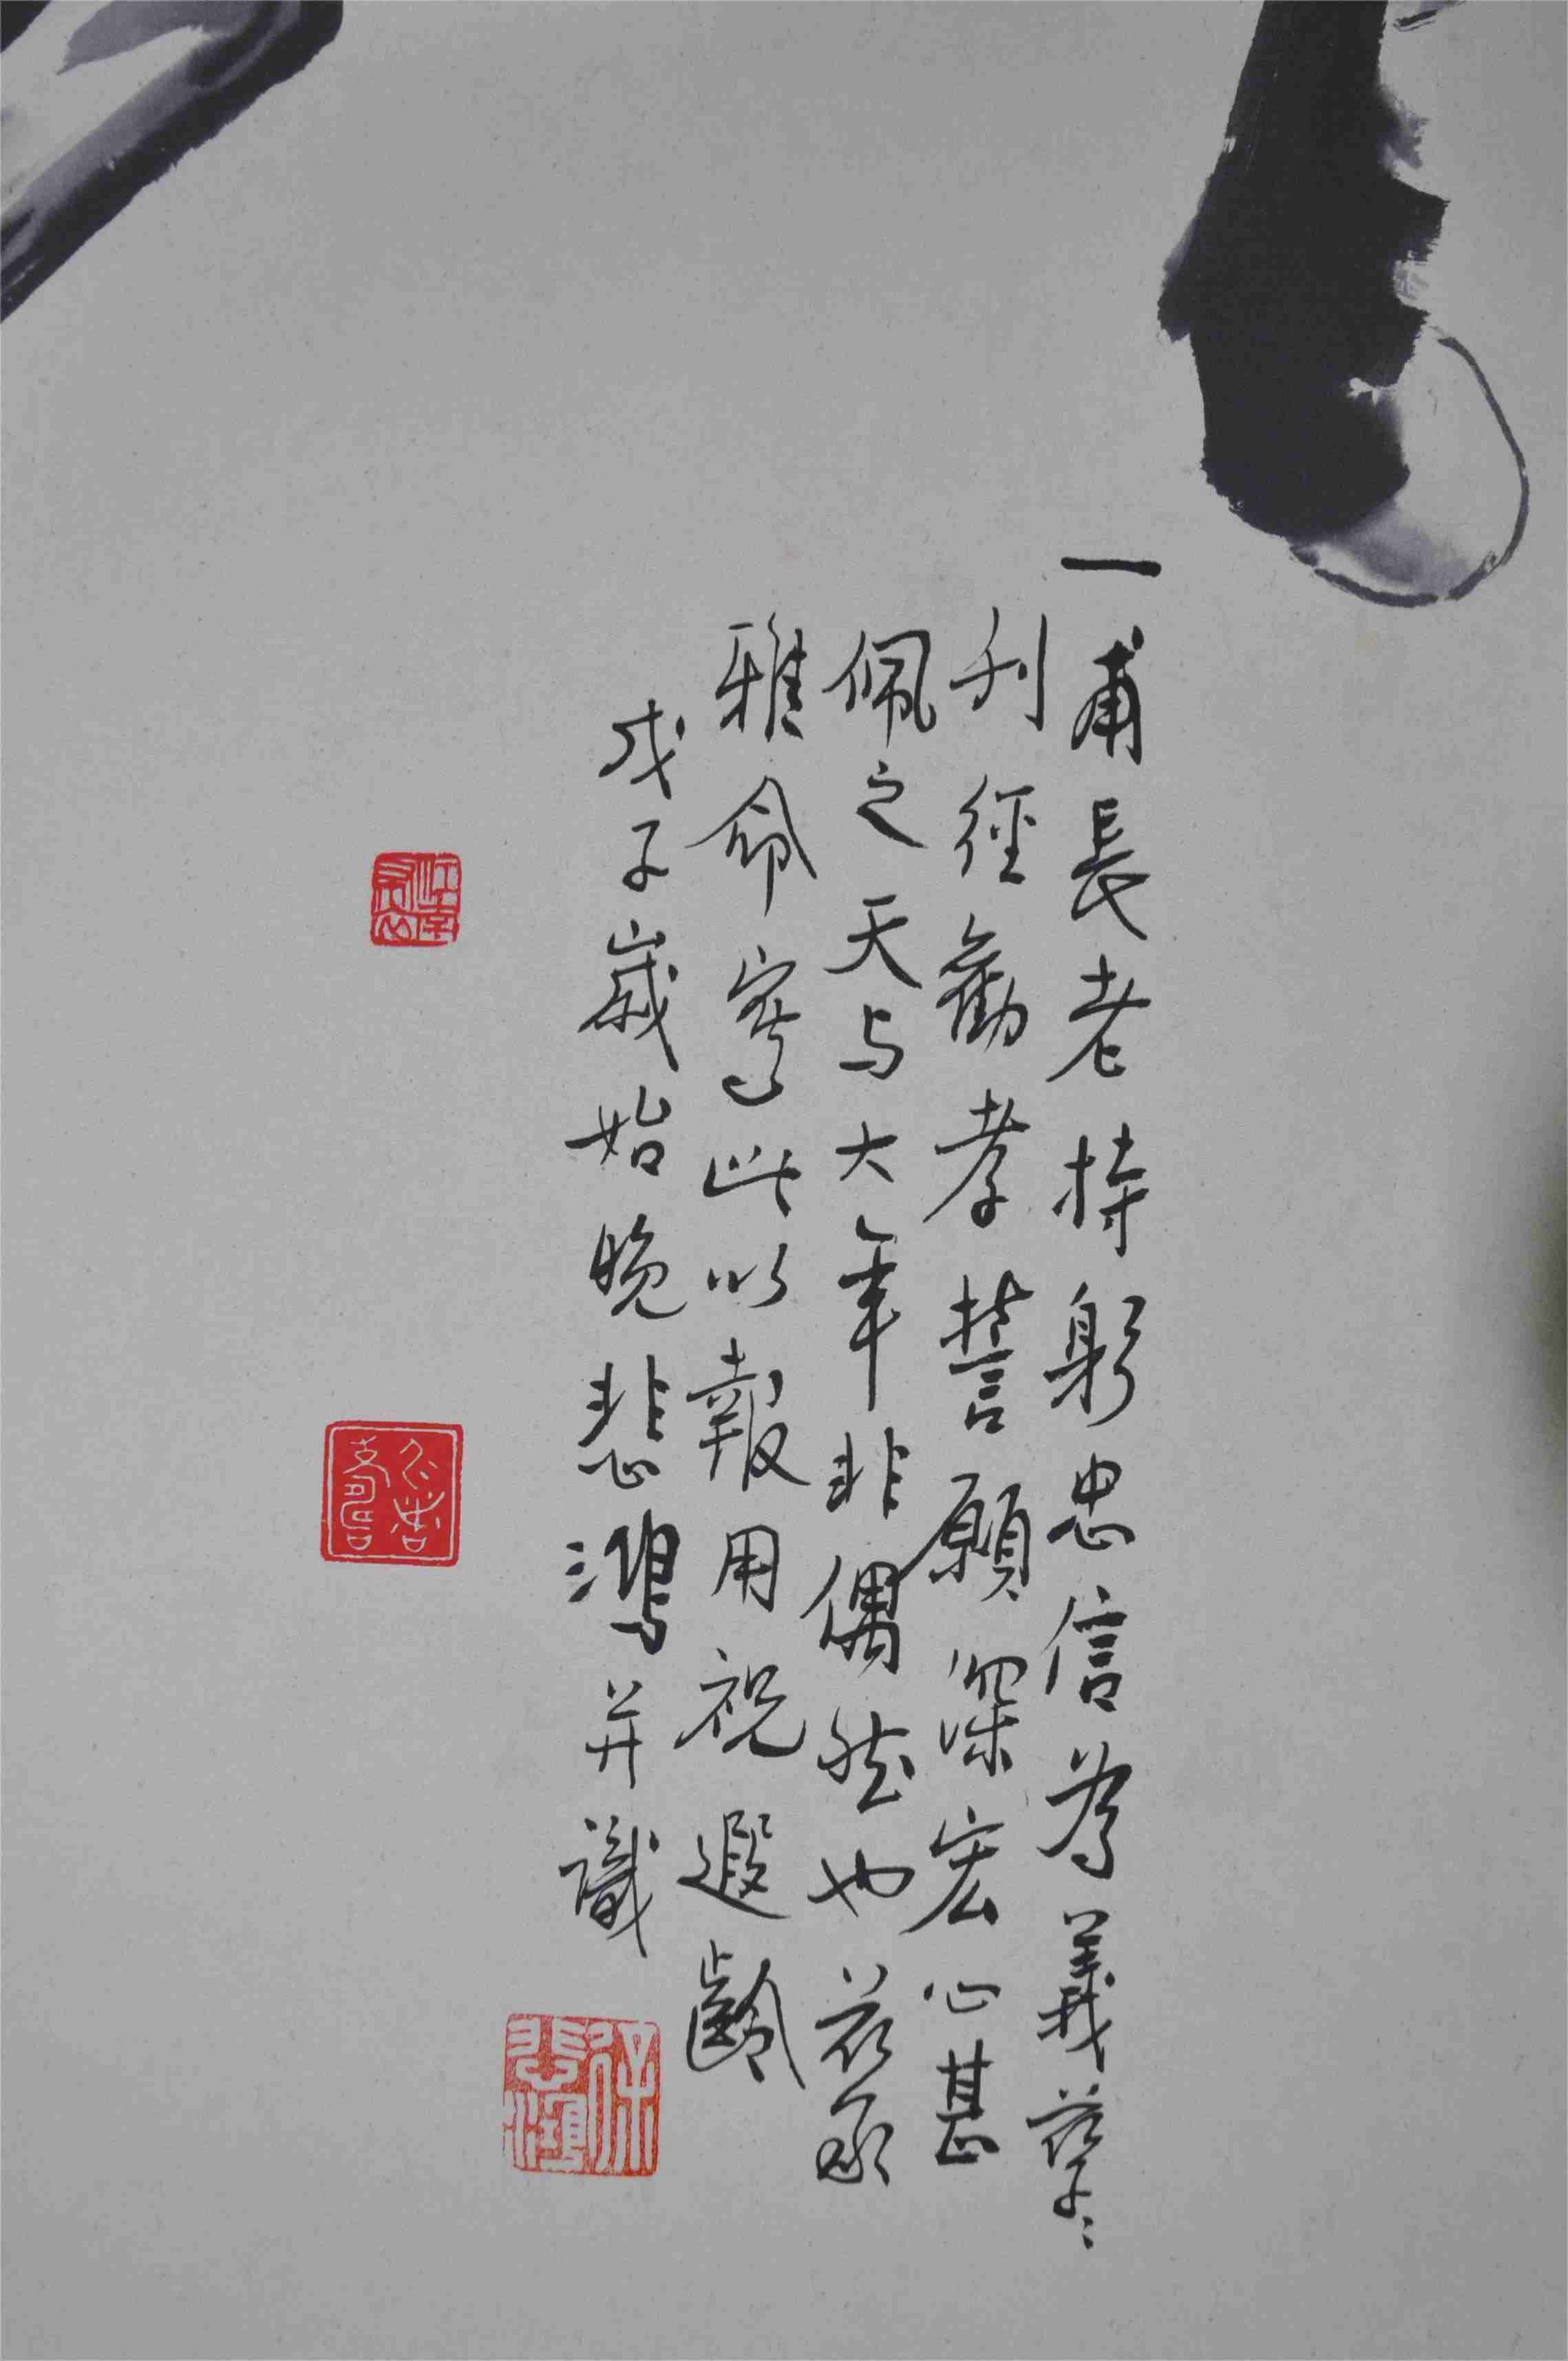 一甫長老持躬忠信為義孳〻
利徑勸孝誓願深宏心甚
佩之天与大年非偶然也茲承
雅命寫此以報用祝遐齡
戊子歲始晚悲鴻并識
徐悲鴻